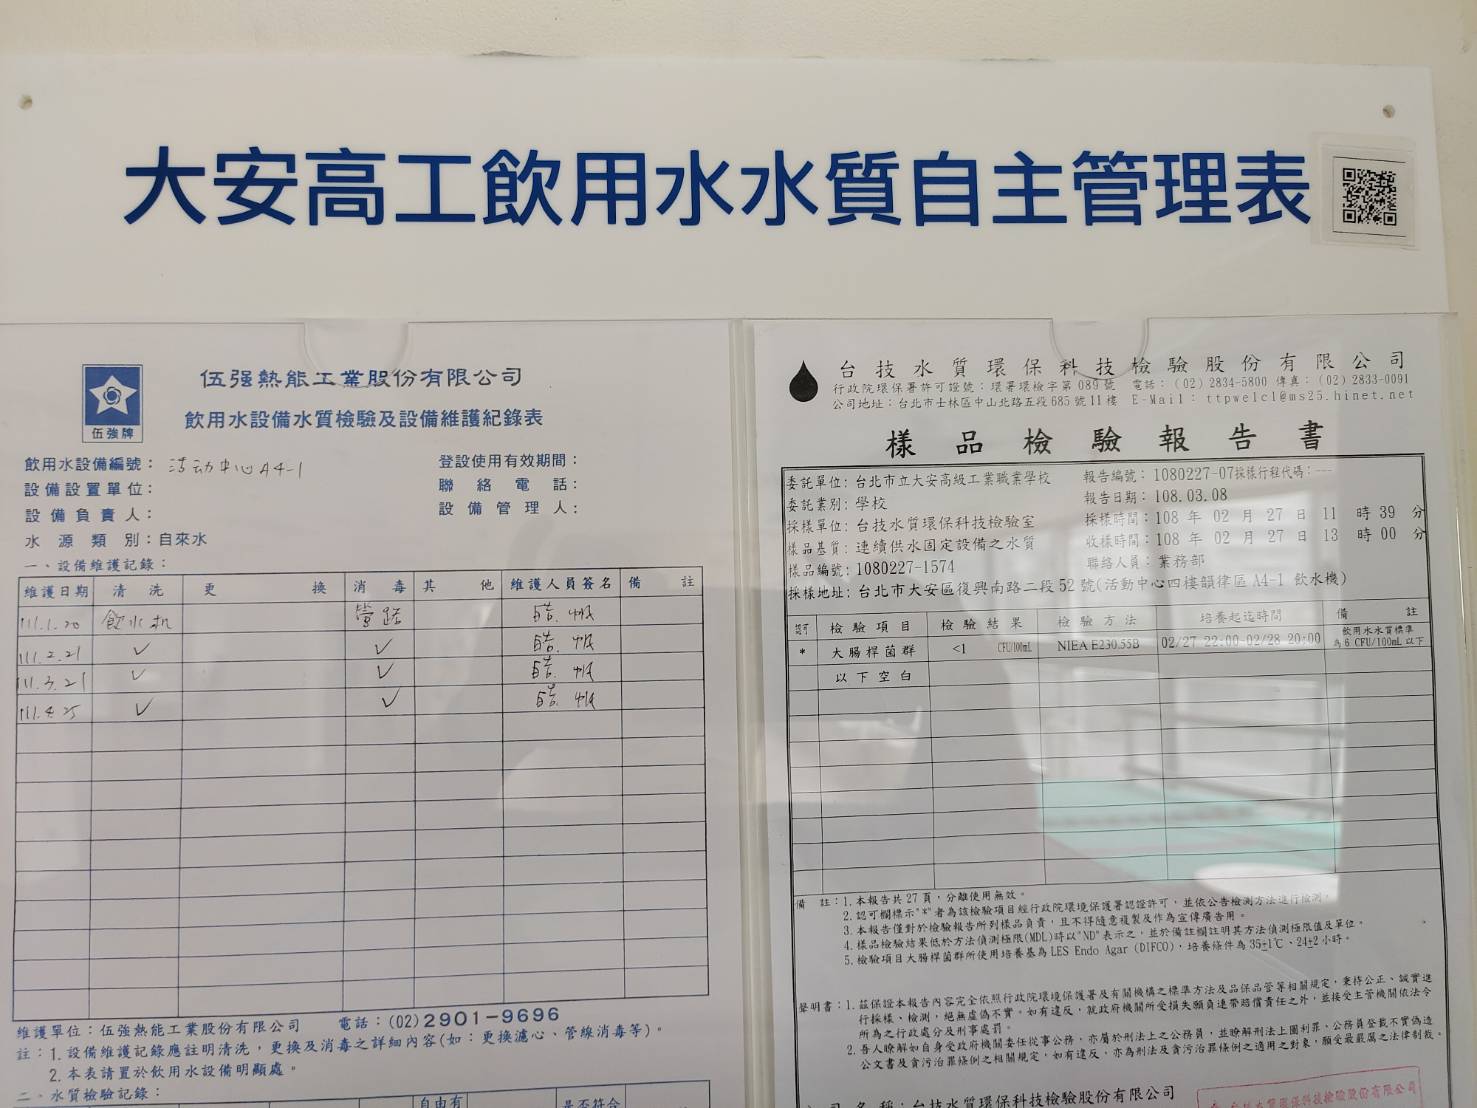 大安高工飲用水水質自主管理表
伍強牌
伍强熱能工業股份有限公司
飲用水設備水質檢驗及設備維護紀錄表
飲用水設備編號：活动中心A4-1
登設使用有效期間：
設備設置單位：
聯絡電話：
設備負責人：
設備管理人：
水源類別：自來水
一、設備維護記錄：
維護日期 清洗 更換 消毒 其他 維護人員簽名 備註
111.1.20 飲水机 管路
111.2.21 ✓ ✓
111.3.21 ✓ ✓
111.4.25 ✓ ✓
維護單位：伍強熱能工業股份有限公司 電話：(02)2901-9696
註：1.設備維護記錄應註明清洗，更換及消毒之詳細內容(如：更換濾心、管線消毒等)。
2.本表請置於飲用水設備明顯處。
二、水質檢驗記錄：
自由有
是否符合
台技水質環保科技檢驗股份有限公司
行政院環保署許可證號：環署環檢字第089號 電話：(02)2834-5800 傳真：(02)2833-0091
公司地址：台北市士林區中山北路五段685號11樓 E-Mail：ttpwelcl@ms25.hinet.net
樣品檢驗報告書
委託單位：台北市立大安高級工業職業學校
報告編號：1080227-07採樣行程代碼：---
委託業別：學校
報告日期：108.03.08
採樣單位：台技水質環保科技檢驗室
採樣時間：108 年 02 月 27 日 11 時 39 分
樣品基質：連續供水固定設備之水質
收樣時間：108 年 02 月 27 日 13 時 00 分
樣品編號：1080227-1574
聯絡人員：業務部
採樣地址：台北市大安區復興南路二段52號(活動中心四樓韻律區A4-1 飲水機)
認可 檢驗項目 檢驗結果 檢驗方法 培養起迄時間 備註
* 大腸桿菌群 <1 CFU/100mL NIEA E230.55B 02/27 22:00-02/28 20:00 飲用水水質標準為6 CFU/100mL以下
以下空白
備註：1.本報告共27頁，分離使用無效。
2.認可欄標示"*"者為該檢驗項目經行政院環境保護署認證許可，並依公告檢測方法進行檢測。
3.本報告僅對於檢驗報告所列樣品負責，且不得隨意複製及作為宣傳廣告用。
4.樣品檢驗結果低於方法偵測極限(MDL)時以"ND"表示之，並於備註欄註明其方法偵測極限值及單位。
5.檢驗項目大腸桿菌群所使用培養基為LES Endo Agar (DIFCO)，培養條件為35±1℃、24±2小時。
聲明書：1.茲保證本報告內容完全依照行政院環境保護署及有關機構之標準方法及品保品管等相關規定，秉持公正、誠實進
行採樣、檢測，絕無虛偽不實。如有違反，就政府機關所受損失願負連帶賠償責任之外，並接受主管機關依法令
所為之行政處分及刑事處罰。
2.吾人瞭解如自身受政府機關委任從事公務，亦屬於刑法上之公務員，並瞭解刑法上圖利罪、公務員登載不實偽造
公文書及貪污治罪條例之相關規定，如有違反，亦為刑法及貪污治罪條例之適用之對象，願受最嚴厲之法律制裁。
公司名稱：台技水質環保科技檢驗股份有限公司
台技水質環保科技檢驗股份有限公司